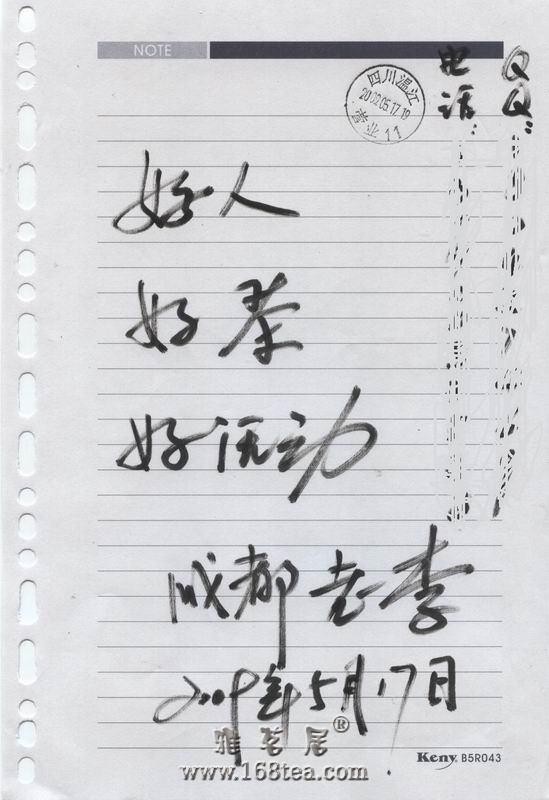 NOTE
QQ:
电话:
四川温江
2009.05.17.19
营业11
好人
好茶
好活动
成都老李
2009年5月17日
雅茗居®
www.168tea.com
Keny. B5R043